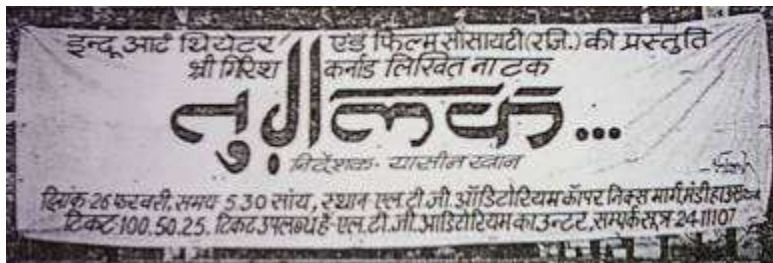 इन्दू आर्ट थियेटर एंड फिल्म सोसायटी (रजि.) की प्रस्तुति
श्री गिरिश कर्नाड लिखित नाटक
तुग़लक...
निर्देशक- यासीन खान
दिनांक 26 फरवरी, समय 5.30 सांय, स्थान एल.टी.जी ऑडिटोरियम कॉपर निक्स मार्ग, मंडी हाउस
टिकट-100.50.25. टिकट उपलब्ध है- एल.टी.जी. आडिटोरियम काउन्टर, सम्पर्क सूत्र 2411107